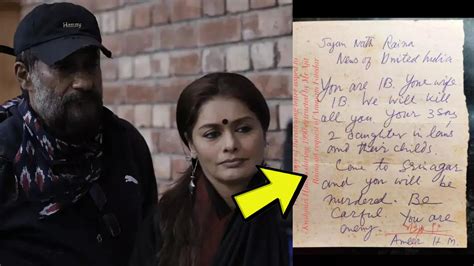 Jagan Nath Raina
News of United India
You are IB. Your wife
IB. We will kill
all you your 3 sons
2 daughter in laws
and their childs
Come to Srinagar
and you will be
murdered. Be
Carful. You are
enemy.
Ameer H.M.